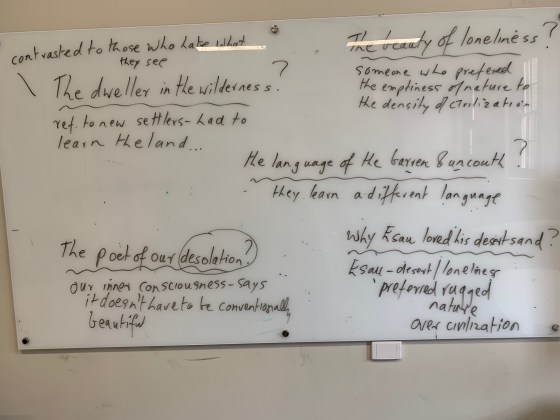 contrasted to those who hate what
they see
The dweller in the wilderness. ?
ref. to new settlers - had to
learn the land...
The beauty of loneliness ?
someone who preferred
the emptiness of nature to
the density of civilization
the language of the barren & uncouth ?
they learn a different language
The poet of our desolation. ?
our inner consciousness - says
it doesn't have to be conventionally
beautiful
Why Esau loved his desert sand ?
Esau - desert / loneliness
preferred rugged
nature
over civilization